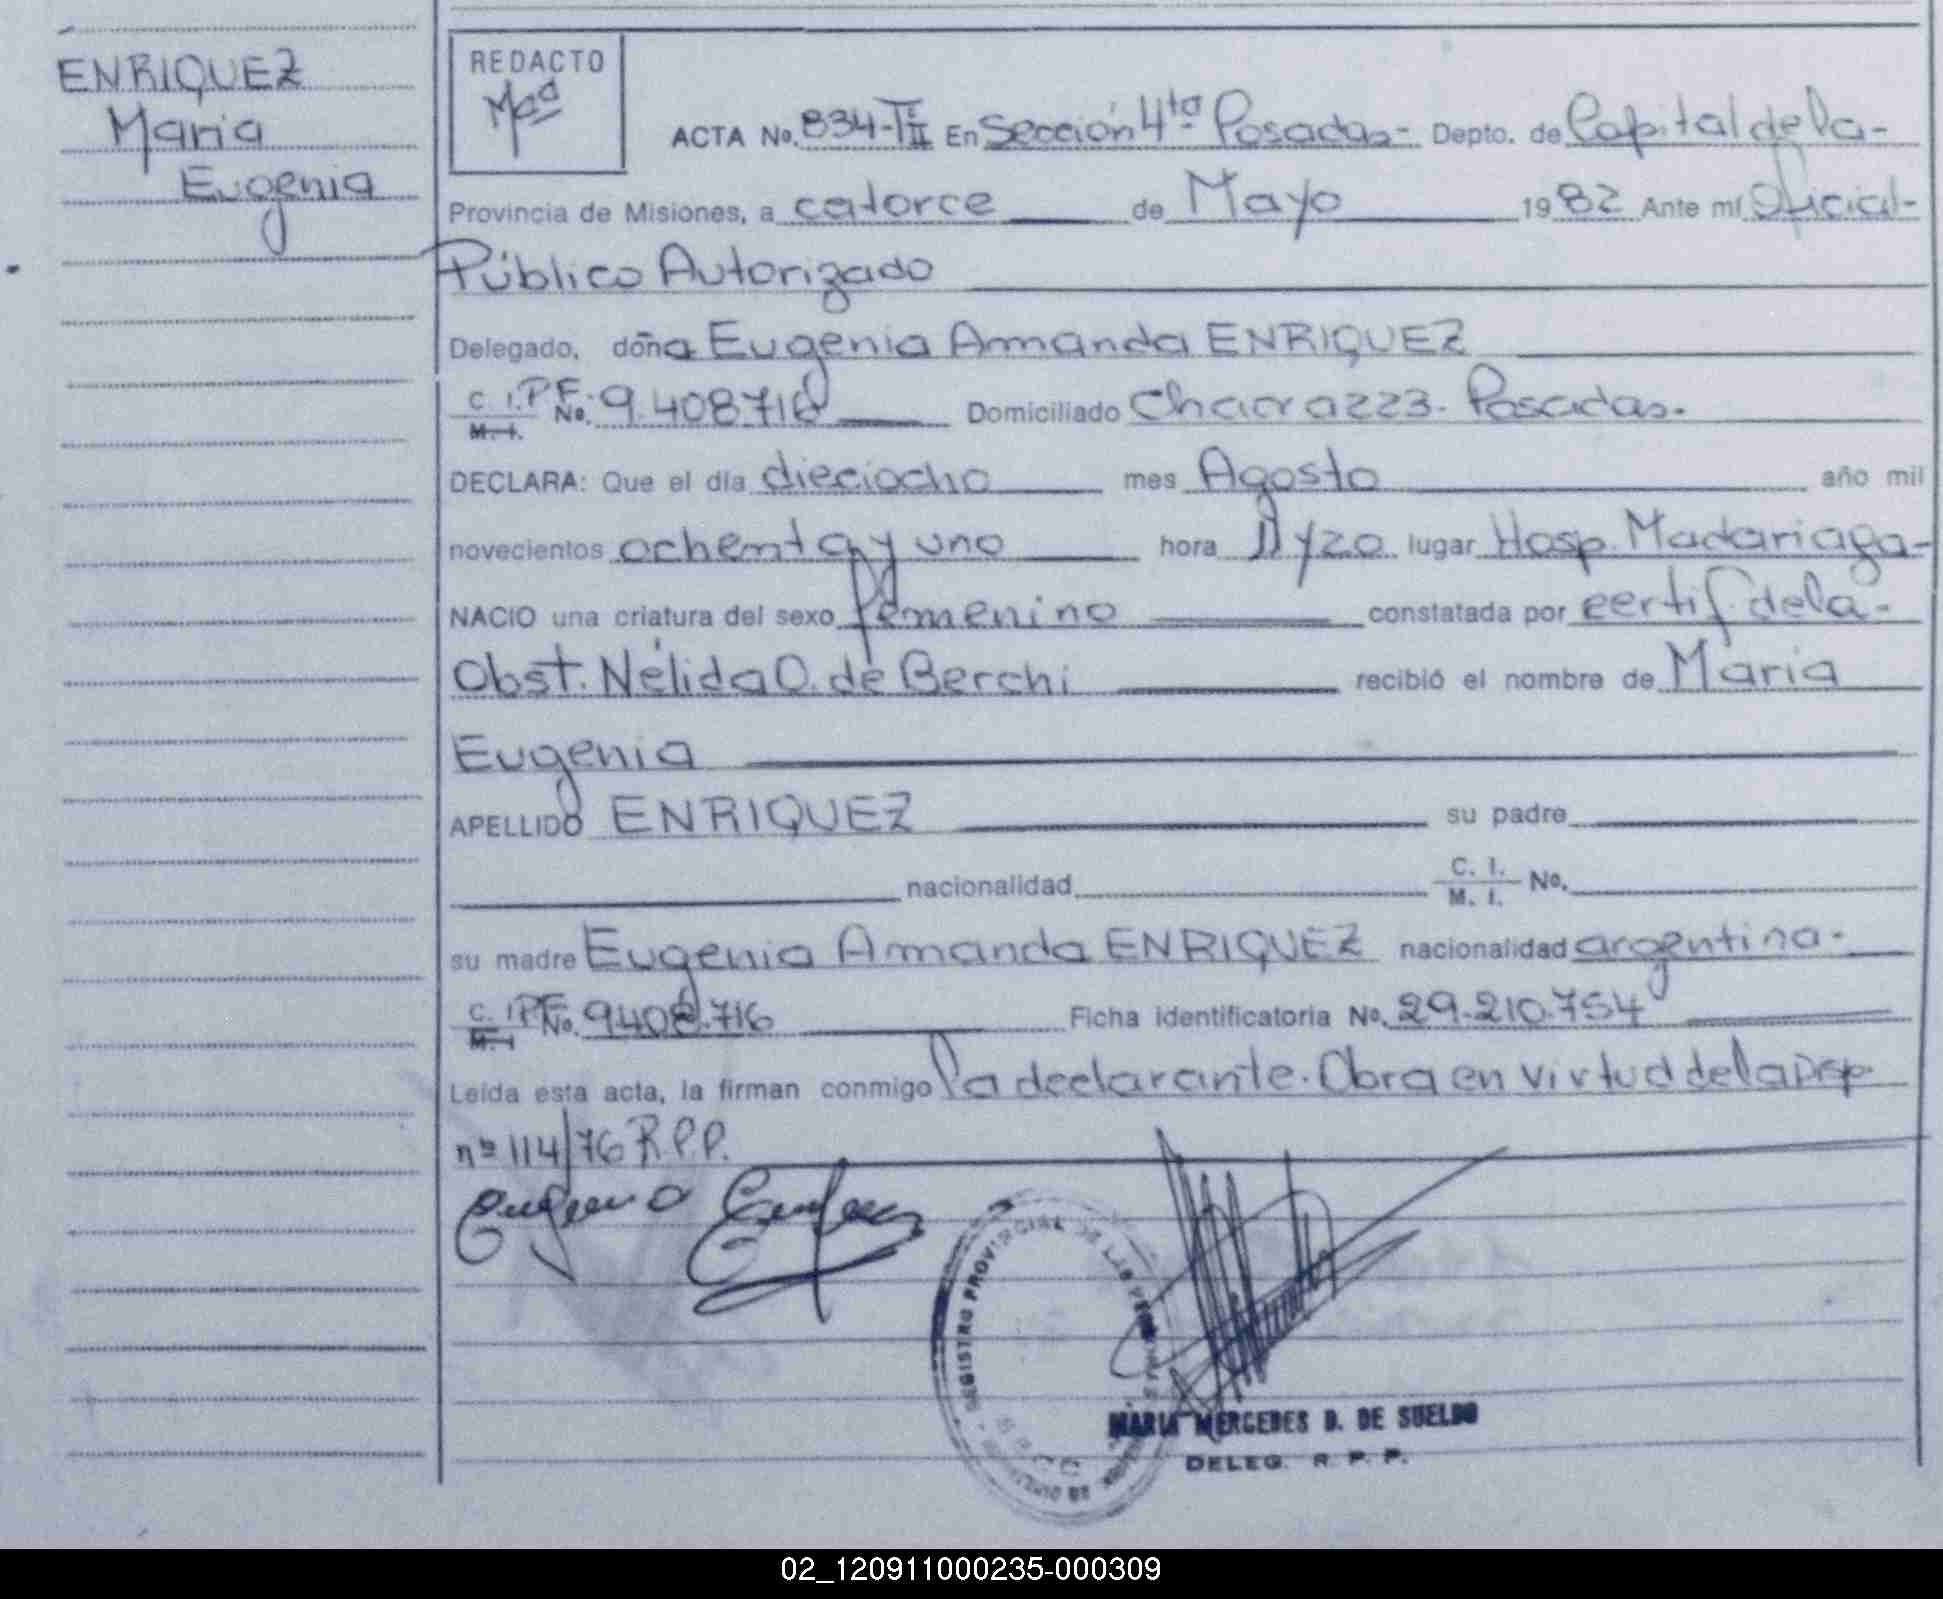 ENRIQUEZ
Maria
Eugenia
REDACTO
Maa
ACTA No. 834-TºII En Sección 4ta Posadas- Depto. de Capital de la-
Provincia de Misiones, a catorce de Mayo 1982 Ante mí Oficial-
Público Autorizado
Delegado, doña Eugenia Amanda ENRIQUEZ
C. I. P.F. M. I. No. 9.408716 Domiciliado Chacra 223. Posadas.
DECLARA: Que el día dieciocho mes Agosto año mil
novecientos ochenta y uno hora 11 y 20 lugar Hosp. Madariaga-
NACIO una criatura del sexo femenino constatada por certif. de la-
Obst. Nélida O. de Berchi recibió el nombre de Maria
Eugenia
APELLIDO ENRIQUEZ su padre
nacionalidad C. I. M. I. No.
su madre Eugenia Amanda ENRIQUEZ nacionalidad argentina-
C. I. P.F. M. I. No. 9408.716 Ficha identificatoria No. 29.210.754
Leída esta acta, la firman conmigo la declarante. Obra en virtud de la Disp
nº 114/76 R.P.P.
REGISTRO PROVINCIAL DE LAS PERSONAS
MARIA MERCEDES D. DE SUELDO
DELEG. R. P. P.
02_120911000235-000309